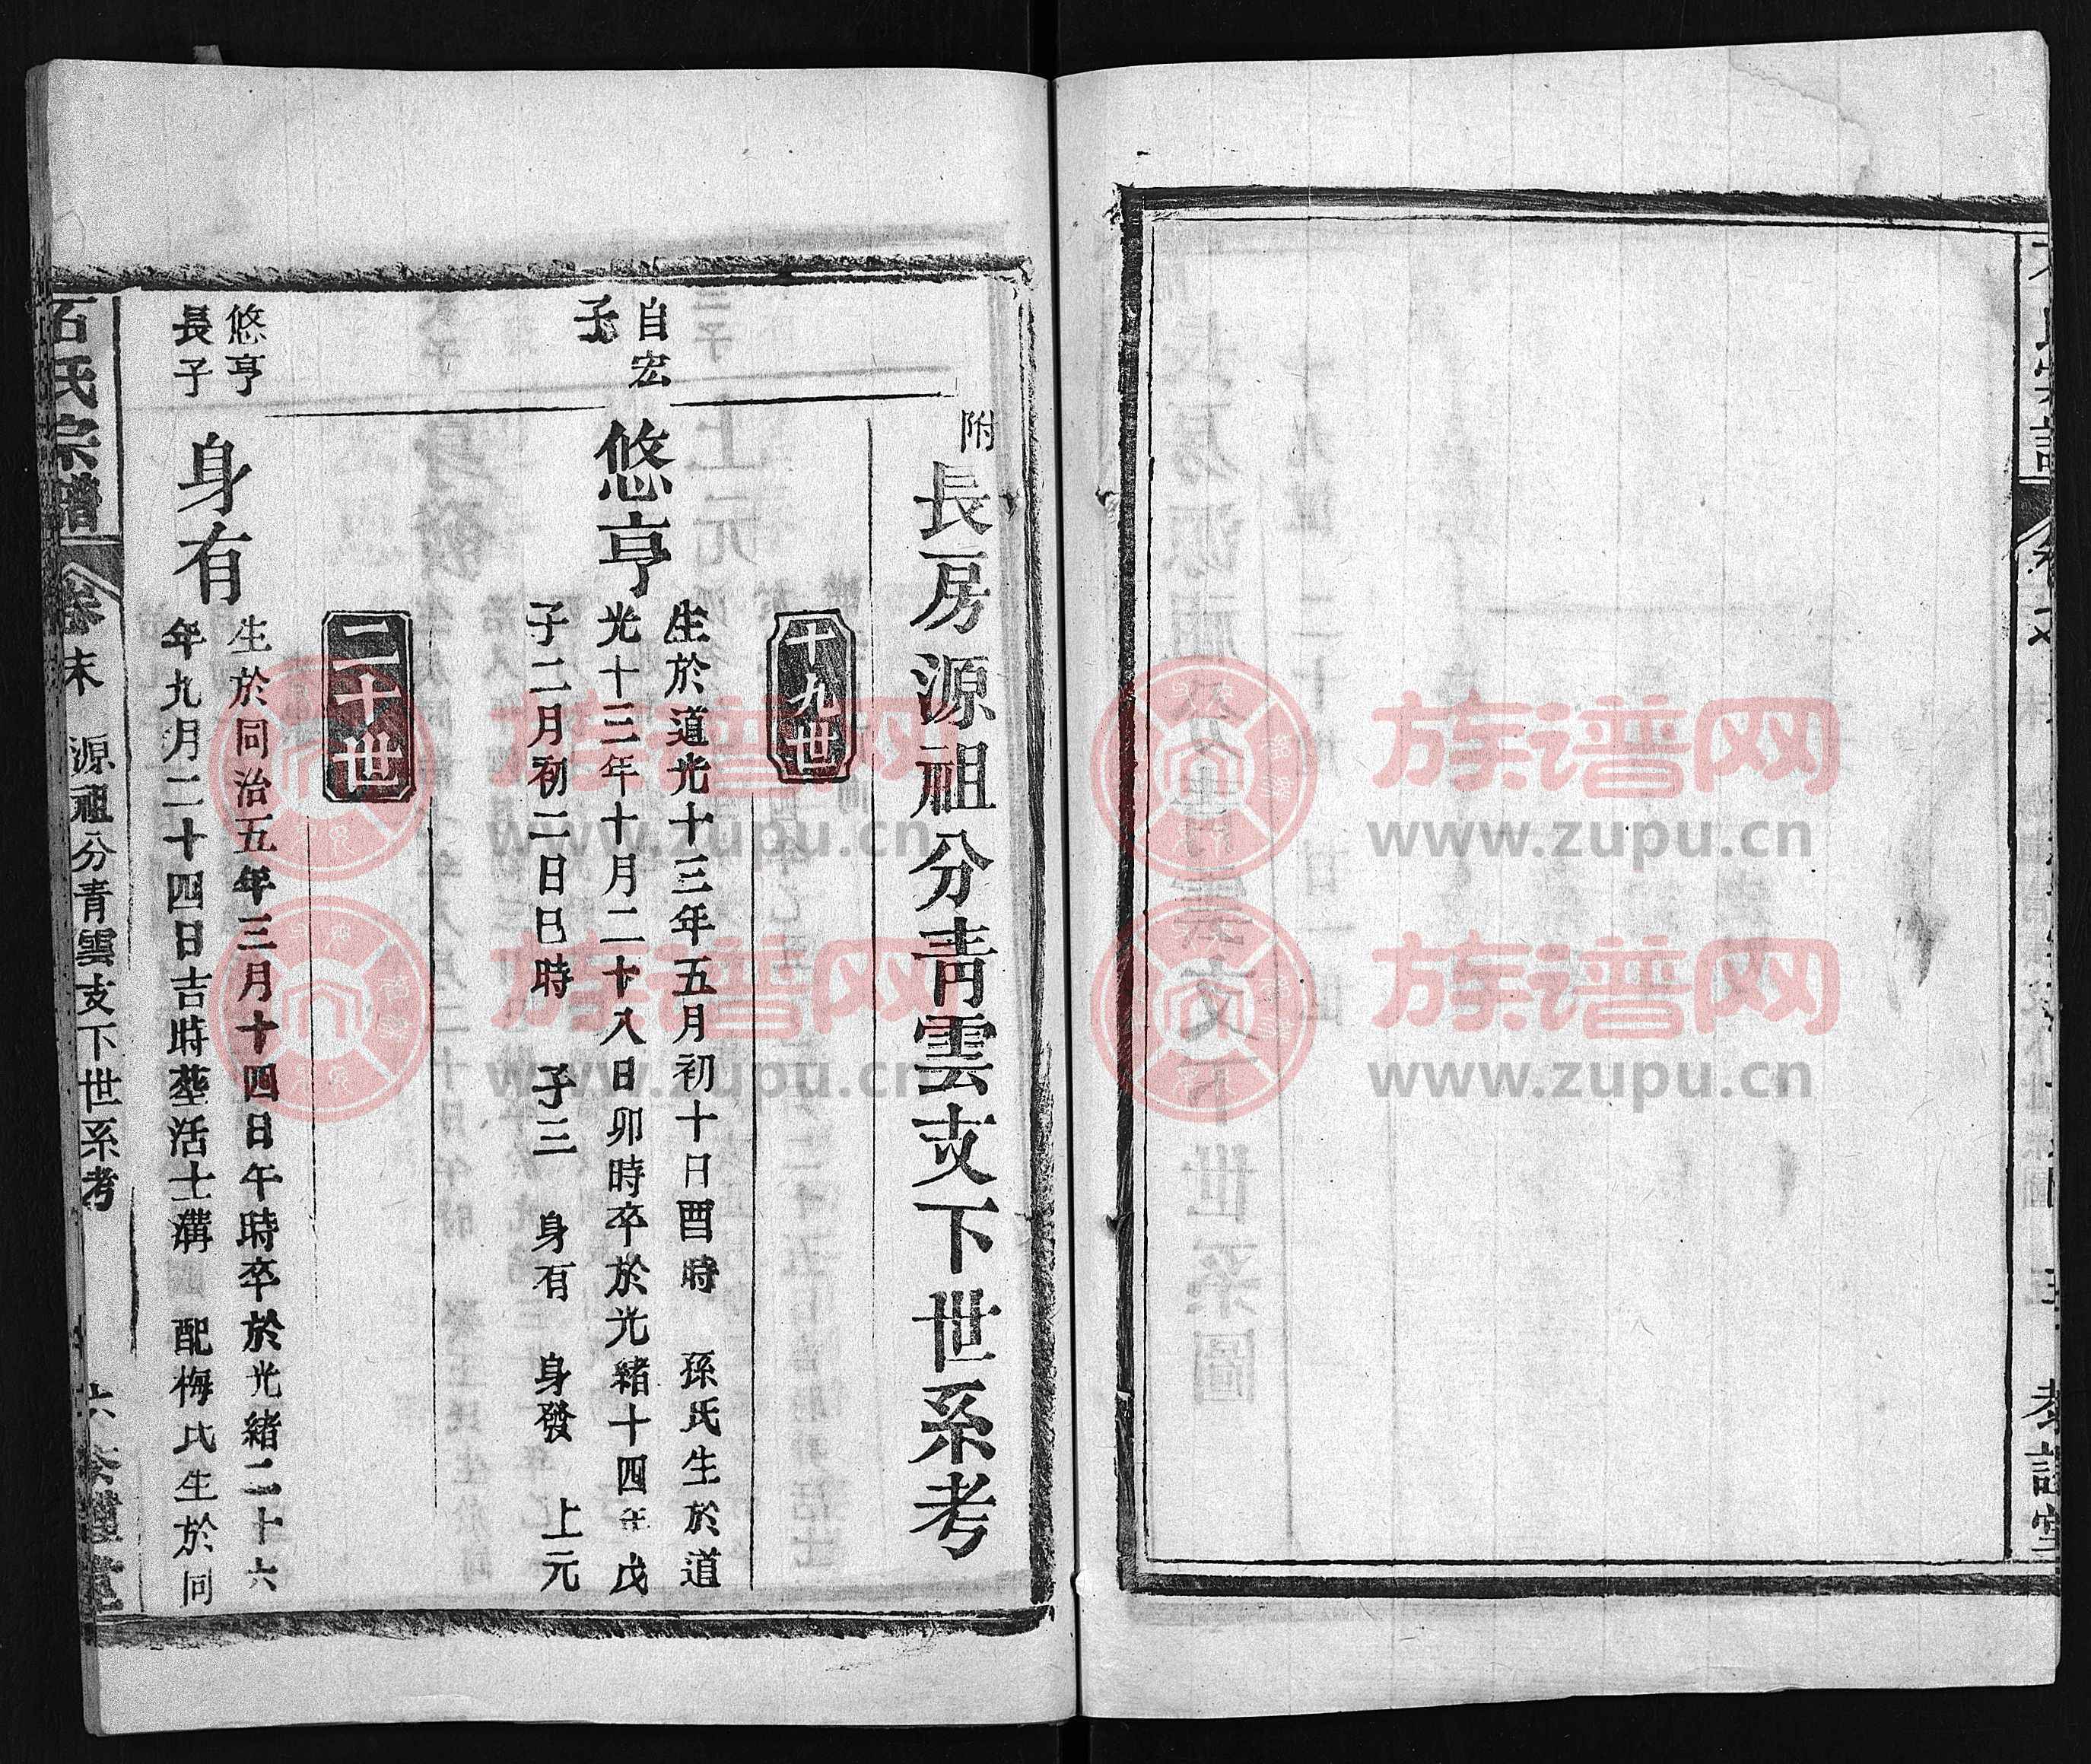 附
長房源祖分青雲支下世系考
十九世
自宏
子
悠亨
生於道光十三年五月初十日酉時 孫氏生於道
光十三年十月二十八日卯時卒於光緒十四年戊
子二月初二日巳時 子三 身有 身發 上元
二十世
悠亨
長子
身有
生於同治五年三月十四日午時卒於光緒二十六
年九月二十四日吉時塟活士溝 配梅氏生於同
石氏宗譜
卷末
源祖分青雲支下世系考
族谱网
www.zupu.cn
族谱网
www.zupu.cn
族谱网
www.zupu.cn
族谱网
www.zupu.cn